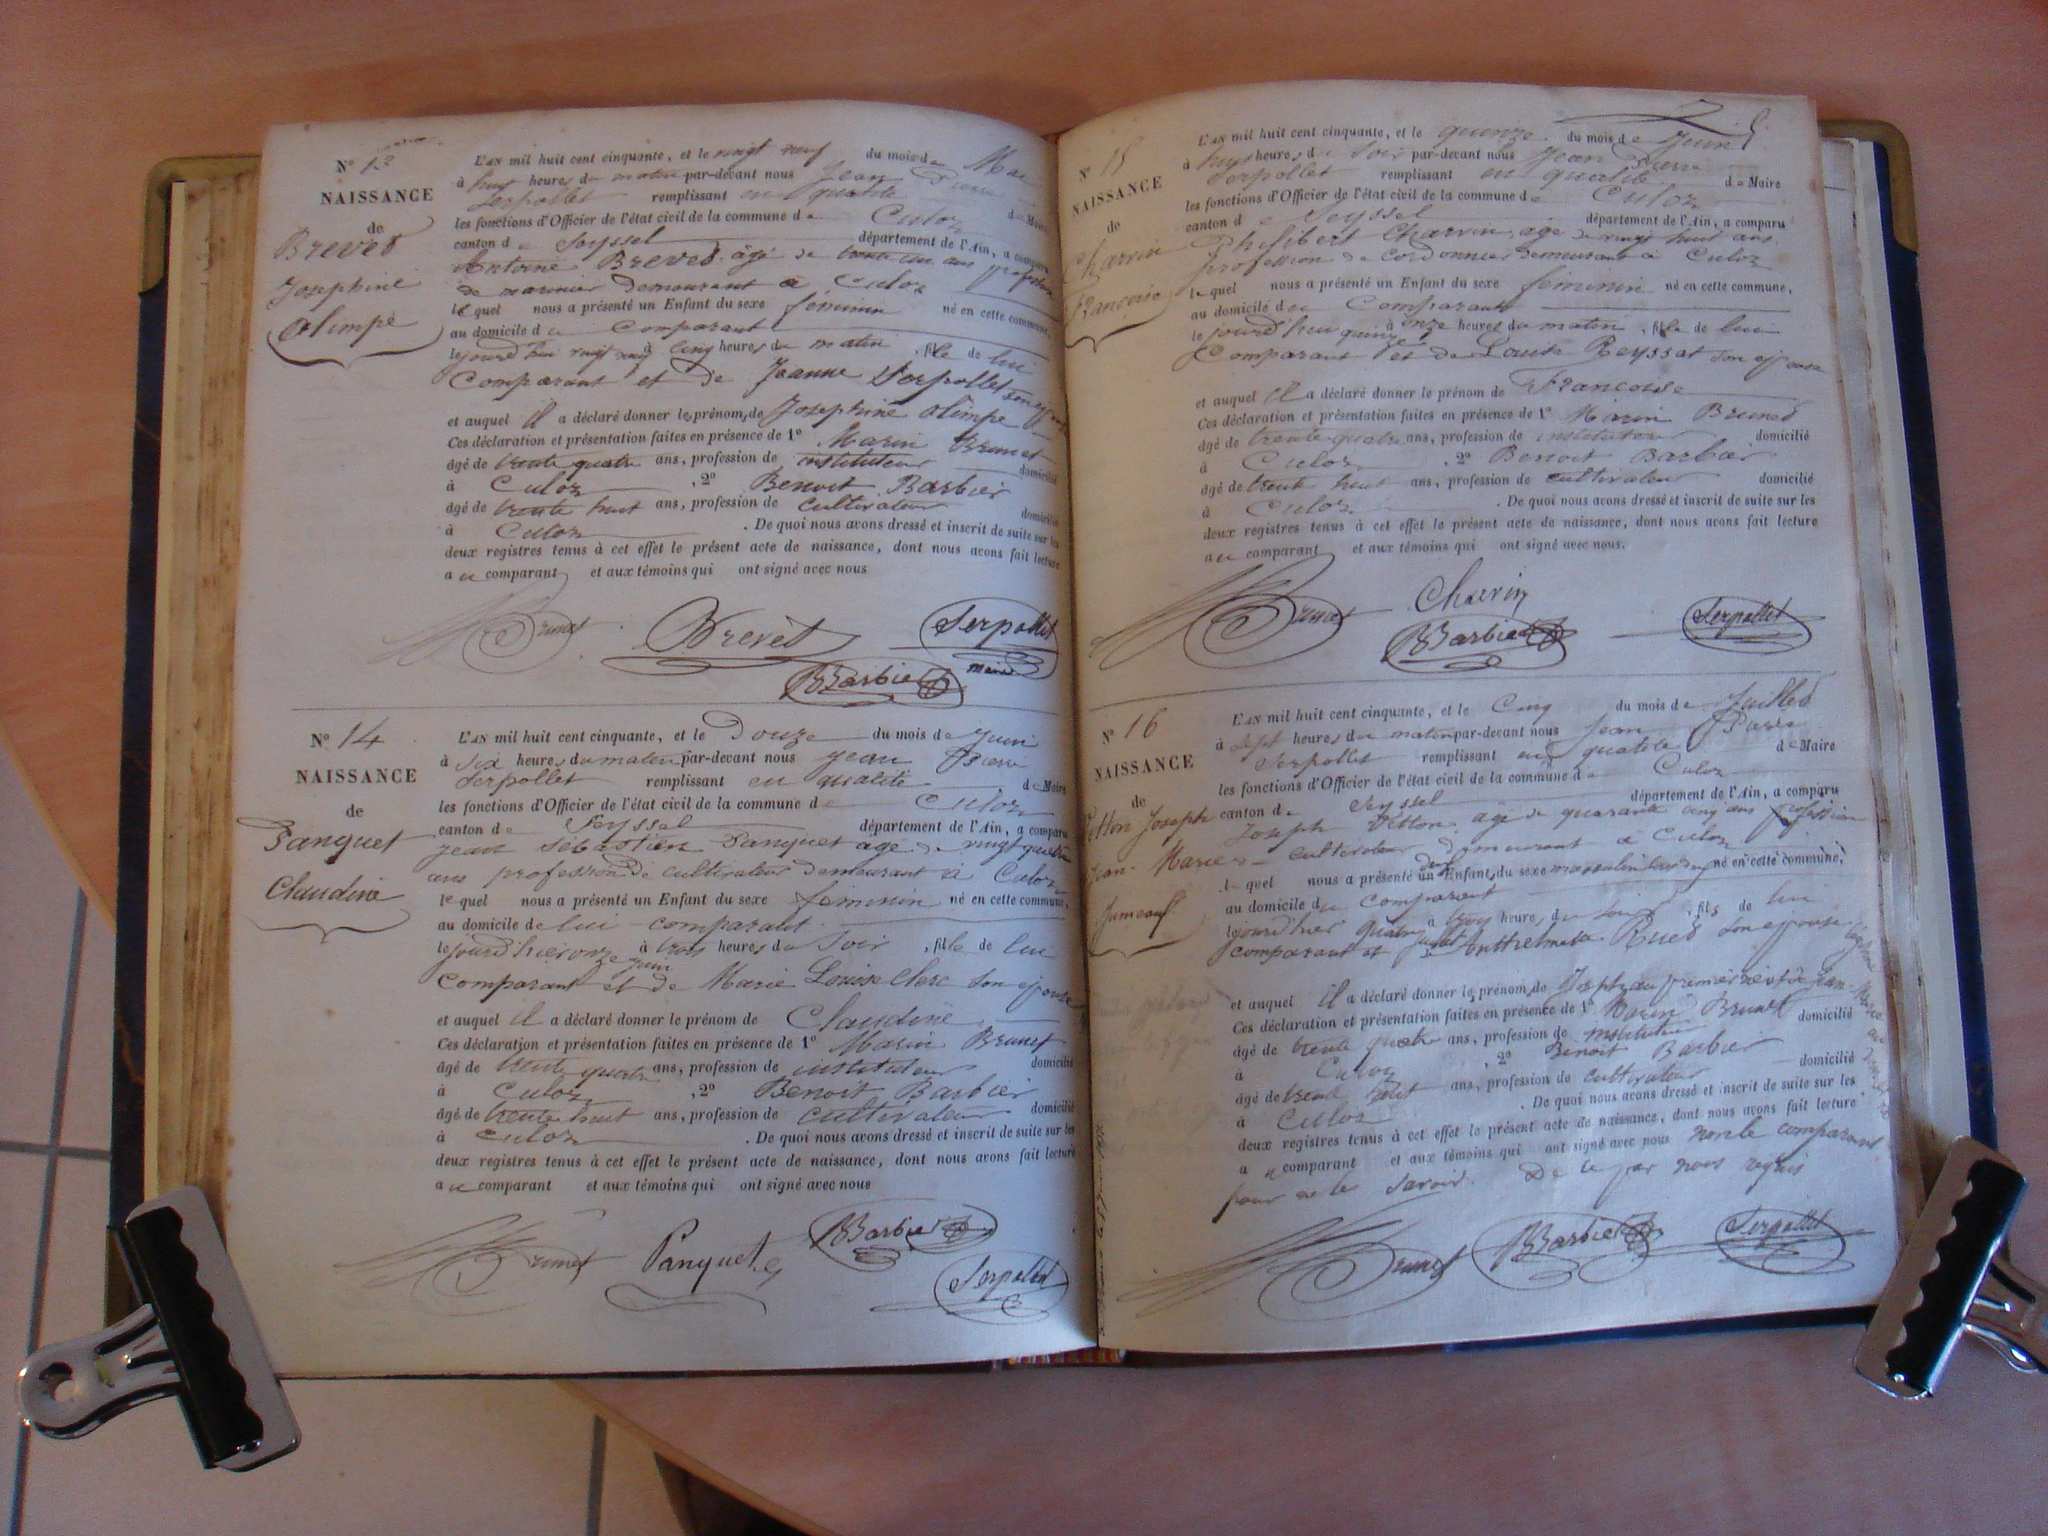 N° 13
NAISSANCE
de
Brevet
Josephine
Olimpe
L'AN mil huit cent cinquante, et le vingt neuf du mois de Mai
à huit heures du matin par-devant nous Jean Pierre
Serpollet remplissant en qualité de Maire
les fonctions d'Officier de l'état civil de la commune de Culoz
canton de Seyssel département de l'Ain, a comparu
Antoine Brevet âgé de trente un ans profession
de marinier demeurant à Culoz
lequel nous a présenté un Enfant du sexe feminin né en cette commune,
au domicile du Comparant
le jourd'hui vingt neuf à cinq heures du matin, fille de lui
Comparant et de Jeanne Serpollet son épouse
et auquel il a déclaré donner les prénoms de Josephine Olimpe
Ces déclaration et présentation faites en présence de 1° Marin Brunet
âgé de trente quatre ans, profession de instituteur domicilié
à Culoz, 2° Benoit Barbier
âgé de trente huit ans, profession de cultivateur domicilié
à Culoz. De quoi nous avons dressé et inscrit de suite sur les
deux registres tenus à cet effet le présent acte de naissance, dont nous avons fait lecture
au comparant et aux témoins qui ont signé avec nous
Brunet Brevet Serpollet
maire
BBarbier
N° 14
NAISSANCE
de
Panquet
Claudine
L'AN mil huit cent cinquante, et le Douze du mois de Juin
à six heures du matin par-devant nous Jean Pierre
Serpollet remplissant en qualité de Maire
les fonctions d'Officier de l'état civil de la commune de Culoz
canton de Seyssel département de l'Ain, a comparu
Jean Sébastien Panquet âgé de vingt quatre
ans profession de cultivateur demeurant à Culoz
lequel nous a présenté un Enfant du sexe feminin né en cette commune,
au domicile de lui comparant
le jourd'hier onze juin à trois heures du soir, fille de lui
Comparant et de Marie Louise Clerc son épouse
et auquel il a déclaré donner le prénom de Claudine
Ces déclaration et présentation faites en présence de 1° Marin Brunet
âgé de trente quatre ans, profession de instituteur domicilié
à Culoz, 2° Benoit Barbier
âgé de trente huit ans, profession de cultivateur domicilié
à Culoz. De quoi nous avons dressé et inscrit de suite sur les
deux registres tenus à cet effet le présent acte de naissance, dont nous avons fait lecture
au comparant et aux témoins qui ont signé avec nous
Brunet Panquet BBarbier
Serpollet
N° 15
NAISSANCE
de
Charvin
Françoise
L'AN mil huit cent cinquante, et le quinze du mois de Juin
à heures du soir par-devant nous Jean Pierre
Serpollet remplissant en qualité de Maire
les fonctions d'Officier de l'état civil de la commune de Culoz
canton de Seyssel département de l'Ain, a comparu
Philibert Charvin, âgé de vingt huit ans
profession de cordonnier demeurant à Culoz
lequel nous a présenté un Enfant du sexe feminin né en cette commune,
au domicile du Comparant
le jourd'hui quinze à onze heures du matin, fille de lui
Comparant et de Louise Reyssat son épouse
et auquel il a déclaré donner le prénom de Francoise
Ces déclaration et présentation faites en présence de 1° Marin Brunet
âgé de trente quatre ans, profession de instituteur domicilié
à Culoz, 2° Benoit Barbier
âgé de trente huit ans, profession de cultivateur domicilié
à Culoz. De quoi nous avons dressé et inscrit de suite sur les
deux registres tenus à cet effet le présent acte de naissance, dont nous avons fait lecture
au comparant et aux témoins qui ont signé avec nous.
Brunet Charvin Serpollet
BBarbier
N° 16
NAISSANCE
de
Vetton Joseph
Jean-Marie
Jumeaux
L'AN mil huit cent cinquante, et le Cinq du mois de Juillet
à sept heures du matin par-devant nous Jean Pierre
Serpollet remplissant en qualité de Maire
les fonctions d'Officier de l'état civil de la commune de Culoz
canton de Seyssel département de l'Ain, a comparu
Joseph Vetton âgé de quarante cinq ans profession
cultivateur demeurant à Culoz
lequel nous a présenté deux Enfants du sexe masculin né en cette commune,
au domicile du comparant
le jourd'hier quatre juillet à trois heures du soir, fils de lui
comparant et de Anthelmette son épouse
et auquel il a déclaré donner les prénoms de Joseph au premier Jean-Marie au
Ces déclaration et présentation faites en présence de 1° Marin Brunet
âgé de trente quatre ans, profession de instituteur domicilié
à Culoz, 2° Benoit Barbier
âgé de trente huit ans, profession de cultivateur domicilié
à Culoz. De quoi nous avons dressé et inscrit de suite sur les
deux registres tenus à cet effet le présent acte de naissance, dont nous avons fait lecture
au comparant et aux témoins qui ont signé avec nous non le comparant
pour ne le savoir. De ce par nous requis
Brunet BBarbier Serpollet